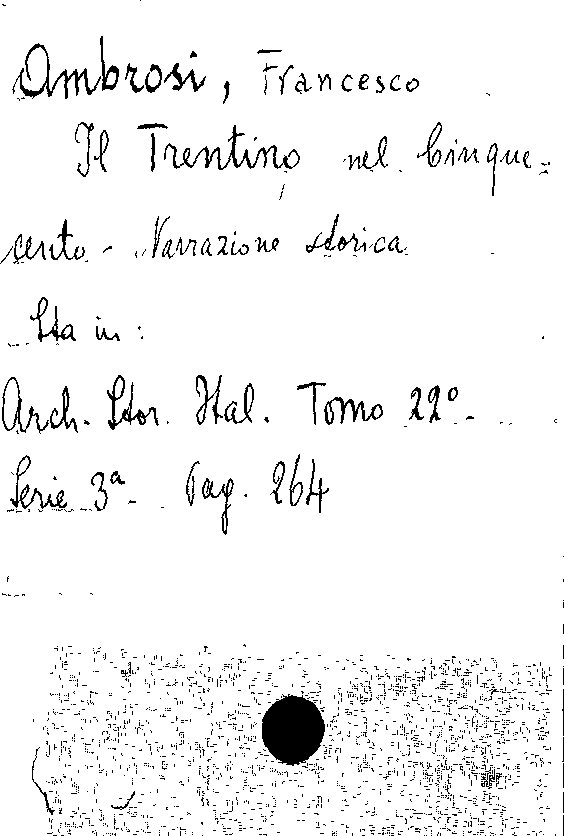 Ambrosi, Francesco
Il Trentino nel Cinque=
cento - Narrazione storica
Sta in:
Arch. Stor. Ital. Tomo 22º-
Serie 3ª- Pag. 264